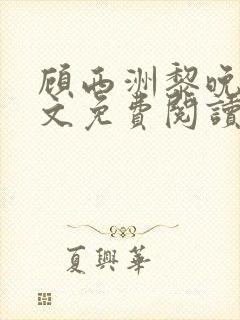 顧西洲黎晚
文免費閱讀
夏興華